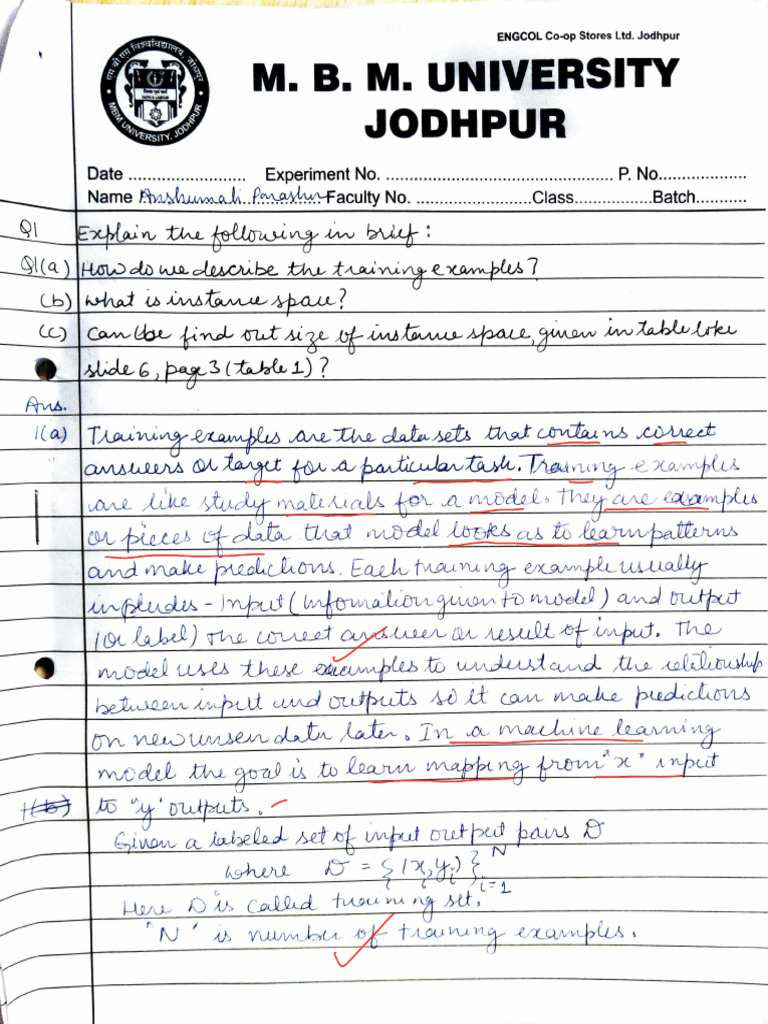 ENGCOL Co-op Stores Ltd. Jodhpur
एम बी एम विश्वविद्यालय, जोधपुर
MBM UNIVERSITY, JODHPUR
M. B. M. UNIVERSITY
JODHPUR
Date .......................... Experiment No. .................................................. P. No....................
Name Anshumali Parashar Faculty No. ..........................Class.................Batch...........
Q1 Explain the following in brief :
Q1(a) How do we describe the training examples?
(b) What is instance space?
(c) Can be find out size of instance space, given in table like
slide 6, page 3 (table 1) ?
Ans.
1(a) Training examples are the data sets that contains correct
answers or target for a particular task. Training examples
are like study materials for a model. They are examples
or pieces of data that model looks as to learn patterns
and make predictions. Each training example usually
includes - Input (Information given to model) and output
(or label) the correct answer or result of input. The
model uses these examples to understand the relationship
between input and outputs so it can make predictions
on new unseen data later. In a machine learning
model the goal is to learn mapping from "x" input
1(b) to "y" outputs.
Given a labeled set of input output pairs D
where D = {(xi, yi)}N i=1
Here D is called training set.
"N" is number of training examples.